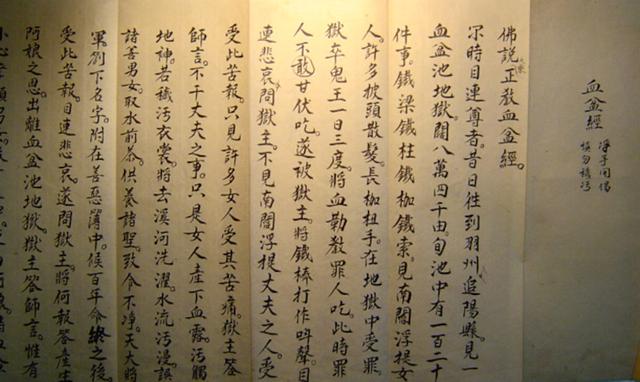 血盆經
淨手開偈
慎勿穢污
佛説正教血盆經。
尒時目連尊者。昔日徃到羽州追陽縣。見一
血盆池地獄。闊八萬四千由旬池中有一百二十
件事。鐵梁鐵柱鐵枷鐵索。見南閻浮提女
人。許多披頭散髮。長枷杻手。在地獄中受罪。
獄卒鬼王一日三度。將血勒教罪人吃。此時罪
人不敢甘伏吃。遂被獄主。將鐵棒打作呌聲。目
連悲哀。問獄主。不見南閻浮提丈夫之人。受
受此苦報。只見許多女人受其苦痛。獄主荅
師言。不干丈夫之事。只是女人產下血露。污觸
地神。若穢污衣裳。將去溪河洗濯。水流污漫。誤
諸善男女。取水煎茶。供養諸聖。致令不淨。天大將
軍。劄下名字。附在善惡簿中。候百年命終之後。
受此苦報。目連悲哀。遂問獄主。將何報答產生
阿娘之恩。出離血盆池地獄。獄主答師言。惟有